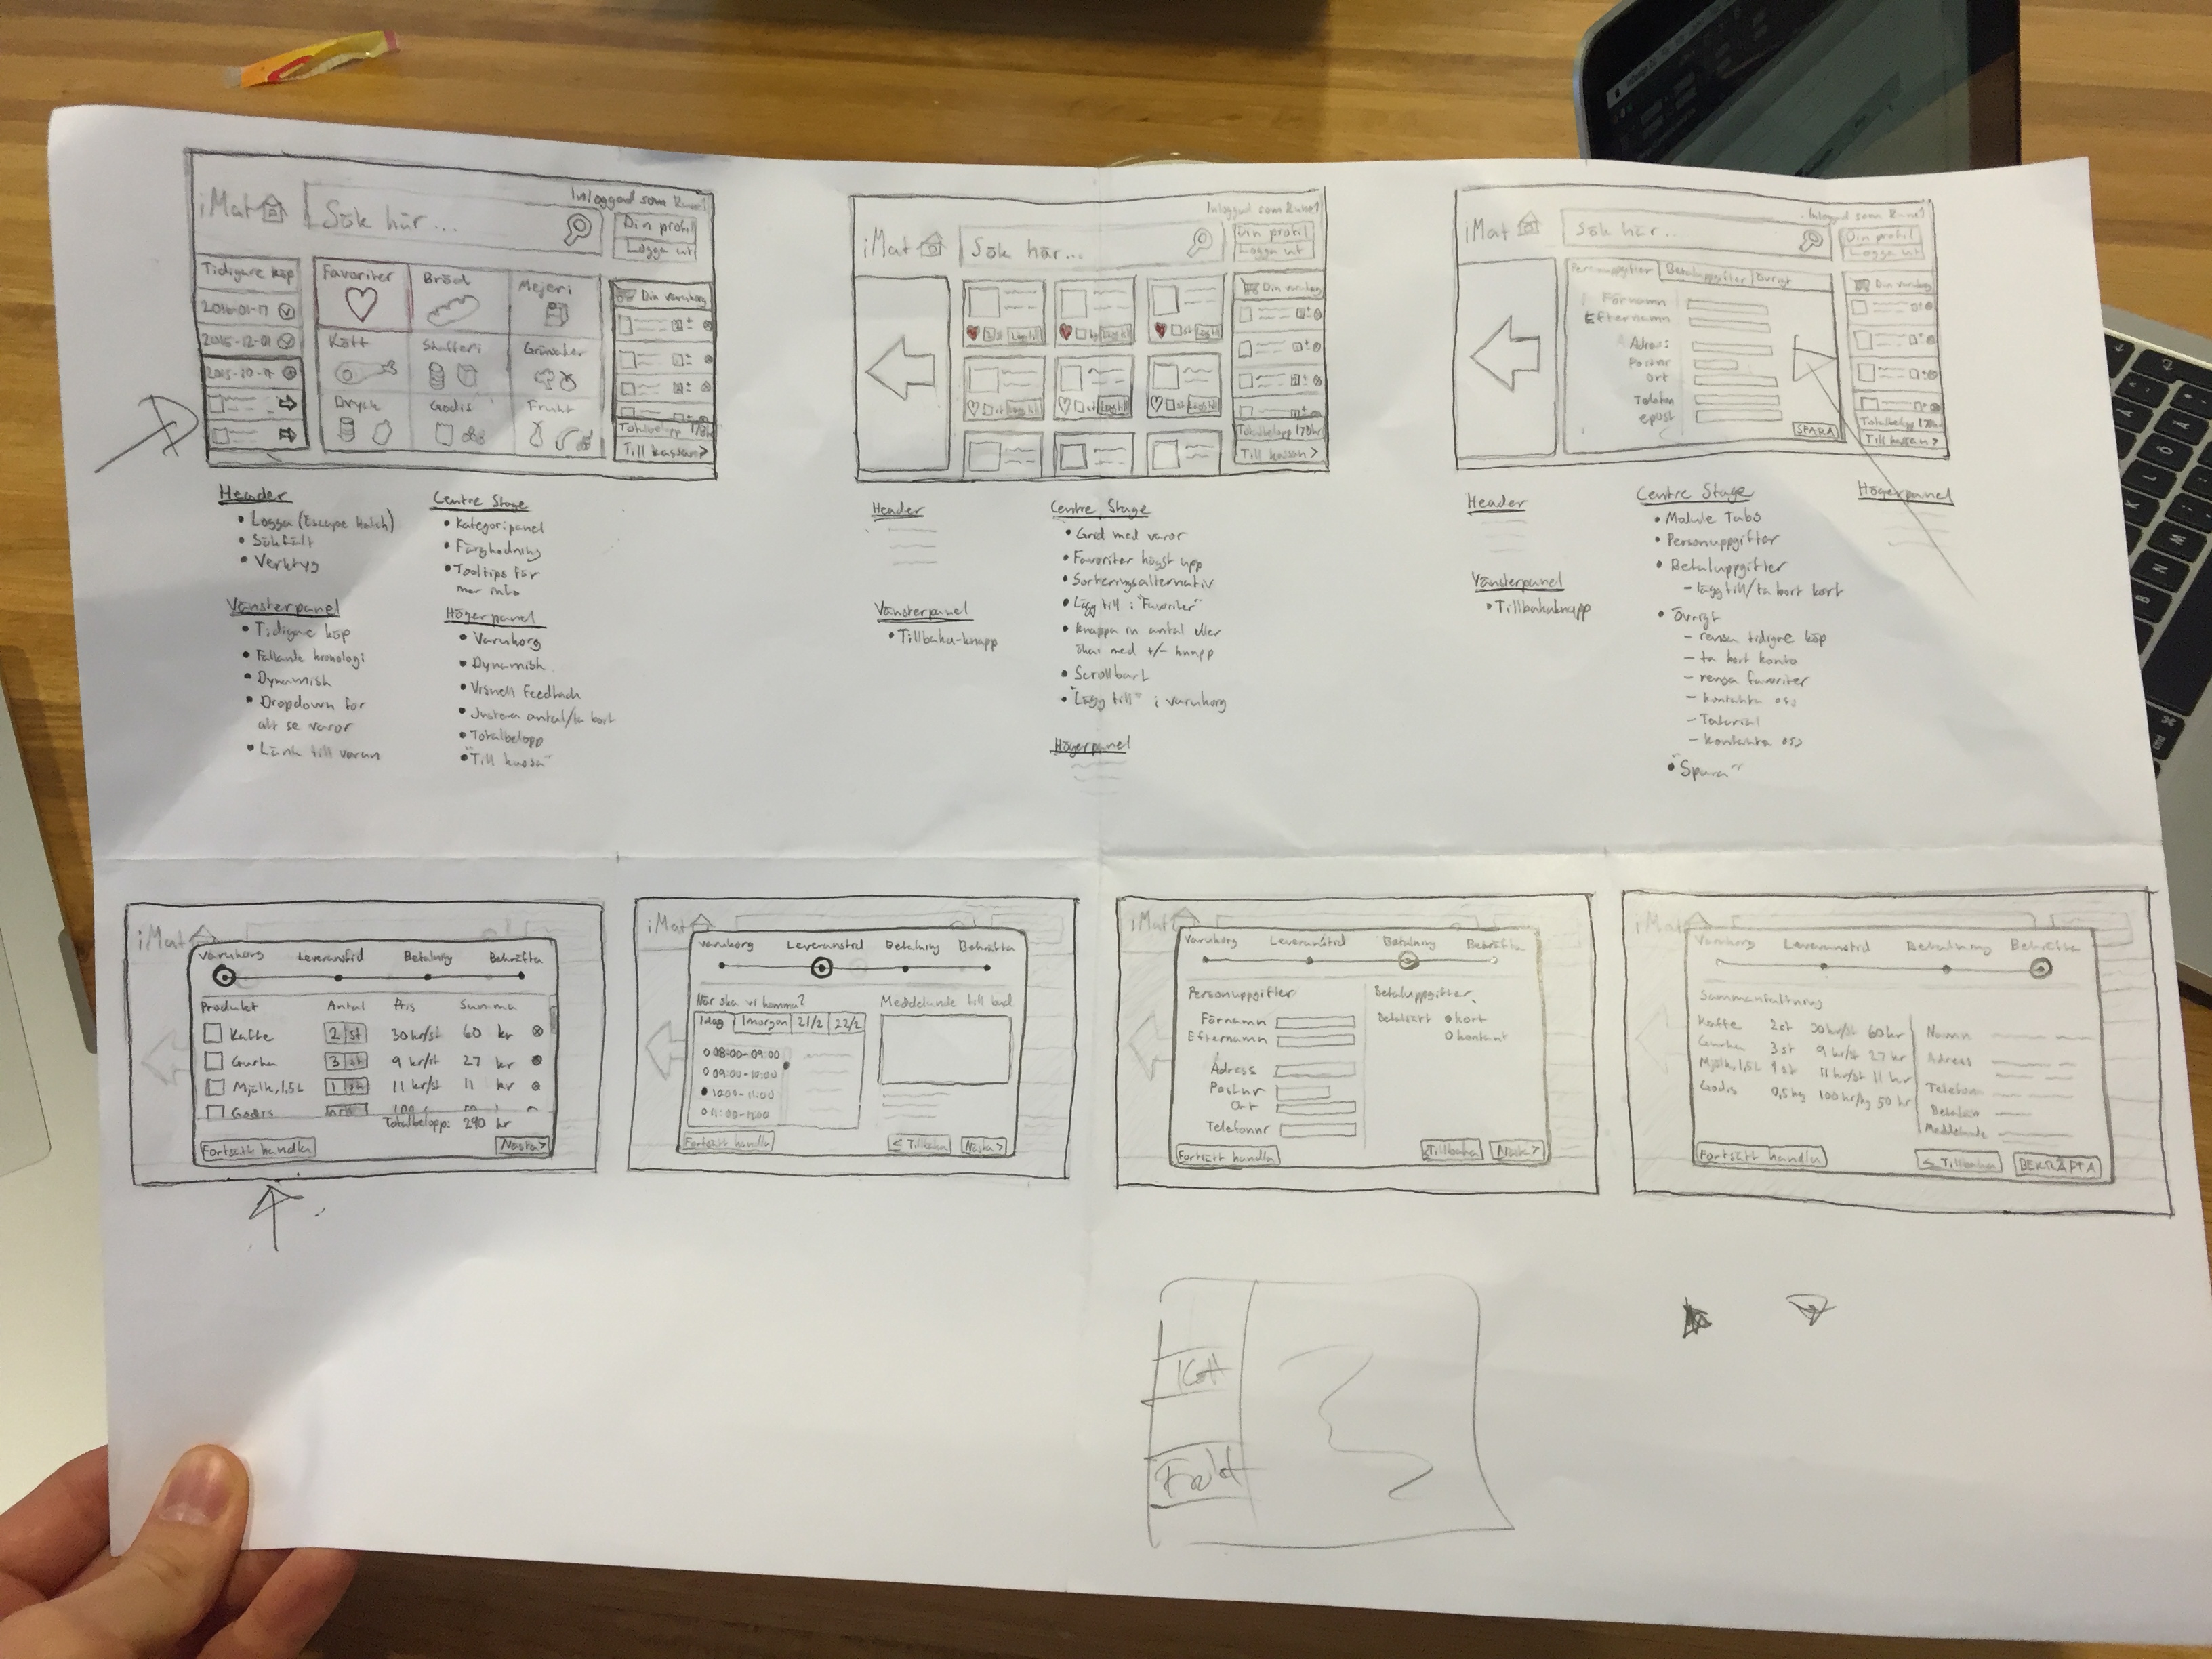 iMat
Sök här...
Inloggad som Rune1
Din profil
Logga ut
Tidigare köp
2016-01-17
2015-12-01
2015-10-17
Favoriter
Bröd
Mejeri
Kött
Skafferi
Grönsaker
Dryck
Godis
Frukt
Din varukorg
Totalbelopp 178kr
Till kassan >
Header
• Logga (Escape Hatch)
• Sökfält
• Verktyg
Vänsterpanel
• Tidigare köp
• Fallande kronologi
• Dynamisk
• Dropdown för
att se varor
• Länk till varan
Centre Stage
• Kategoripanel
• Färgkodning
• Tooltips för
mer info
Högerpanel
• Varukorg
• Dynamisk
• Visuell Feedback
• Justera antal/ta bort
• Totalbelopp
• "Till kassa"
iMat
Sök här...
Inloggad som Rune1
Din profil
Logga ut
Lägg till
Lägg till
Lägg till
Lägg till
Lägg till
Lägg till
Din varukorg
Totalbelopp 178kr
Till kassan >
Header
Vänsterpanel
• Tillbaka-knapp
Centre Stage
• Grid med varor
• Favoriter högst upp
• Sorteringsalternativ
• Lägg till i "Favoriter"
• Knappa in antal eller
ökar med +/- knapp
• Scrollbar
• "Lägg till" i varukorg
Högerpanel
iMat
Sök här...
Inloggad som Rune1
Din profil
Logga ut
Personuppgifter
Betaluppgifter
Övrigt
Förnamn
Efternamn
Adress
Postnr
Ort
Telefon
epost
SPARA
Din varukorg
Totalbelopp 178kr
Till kassan >
Header
Vänsterpanel
• Tillbakaknapp
Centre Stage
• Module Tabs
• Personuppgifter
• Betaluppgifter
- lägg till/ta bort kort
• Övrigt
- rensa tidigare köp
- ta bort konto
- rensa favoriter
- kontakta oss
- Tutorial
- kontakta oss
• "Spara"
Högerpanel
iMat
Varukorg Leveranstid Betalning Bekräfta
Produkt Antal Pris Summa
Kaffe 2 st 30 kr/st 60 kr
Gurka 3 st 9 kr/st 27 kr
Mjölk, 1,5L 1 st 11 kr/st 11 kr
Godis
Totalbelopp: 290 kr
Fortsätt handla
Nästa >
iMat
Varukorg Leveranstid Betalning Bekräfta
När ska vi komma?
Idag Imorgon 21/2 22/2
08:00-09:00
09:00-10:00
10:00-11:00
11:00-12:00
Meddelande till bud
Fortsätt handla
< Tillbaka
Nästa >
iMat
Varukorg Leveranstid Betalning Bekräfta
Personuppgifter
Förnamn
Efternamn
Adress
Postnr
Ort
Telefonnr
Betaluppgifter
Betalsätt kort
kontant
Fortsätt handla
< Tillbaka
Nästa >
iMat
Varukorg Leveranstid Betalning Bekräfta
Sammanfattning
Kaffe 2st 30 kr/st 60 kr
Gurka 3 st 9 kr/st 27 kr
Mjölk, 1,5L 1 st 11 kr/st 11 kr
Godis 0,5 kg 100 kr/kg 50 kr
Namn
Adress
Telefon
Betalsätt
Meddelande
Fortsätt handla
< Tillbaka
BEKRÄFTA
Kött
Frukt